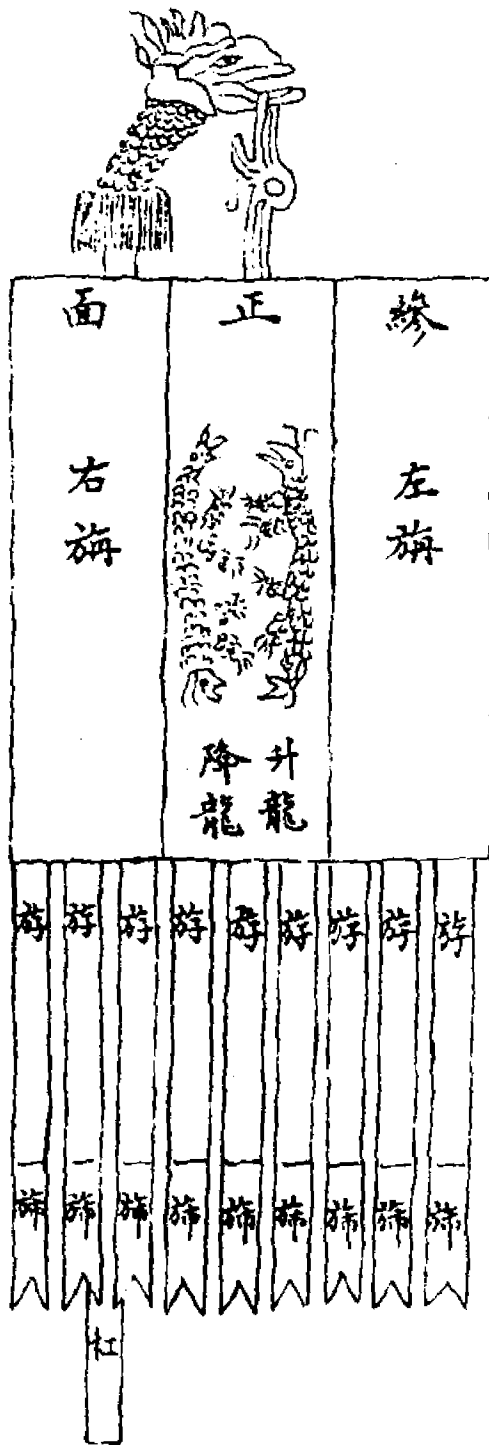 縿正面
左旃
右旃
升龍
降龍
斿斿斿斿斿斿斿斿斿
旆旆旆旆旆旆旆旆旆
杠